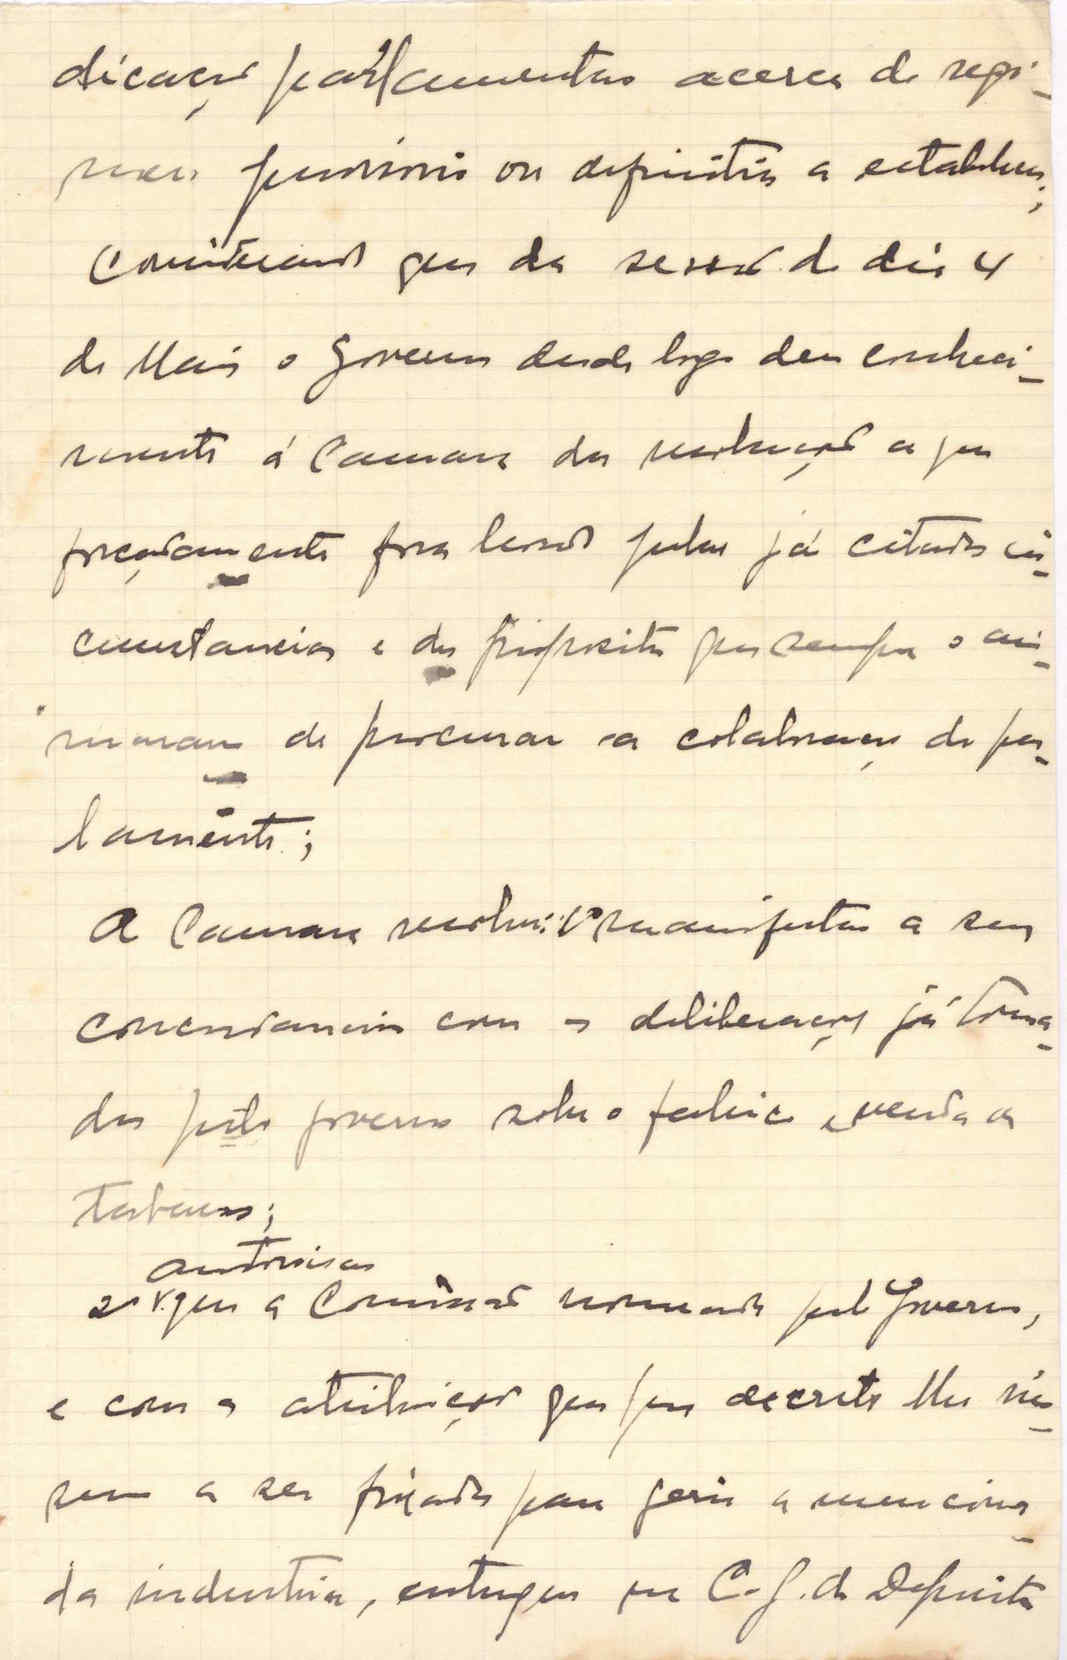 dicação parlamentar acerca do regi-
men provisorio ou definitivo a estabelecer;
Considerando que da sessão do dia 4
de Maio o Governo desde logo deu conheci-
mento á Camara da resolução a que
forçadamente fora levado pelas já citadas cir-
cunstancias e do proposito que sempre o ani-
maram de procurar a colaboração do par-
lamento;
A Camara resolve: 1º manifestar a sua
concordancia com as deliberações já toma-
das pelo governo sobre o fabrico e venda de
tabacos;
autorisar
2º que a Comissão nomeada pelo Governo,
e com as atribuições que por decreto lhe vie-
rem a ser fixadas para gerir a menciona-
da industria, entregue na C. G. de Depositos